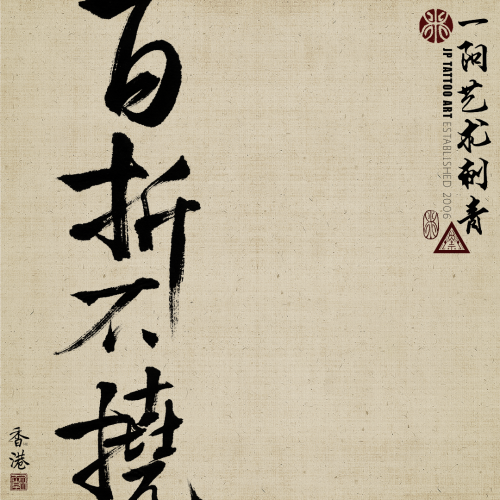 一阳艺术刺青
JP TATTOO ART ESTABLISHED 2006
百折不撓
香港